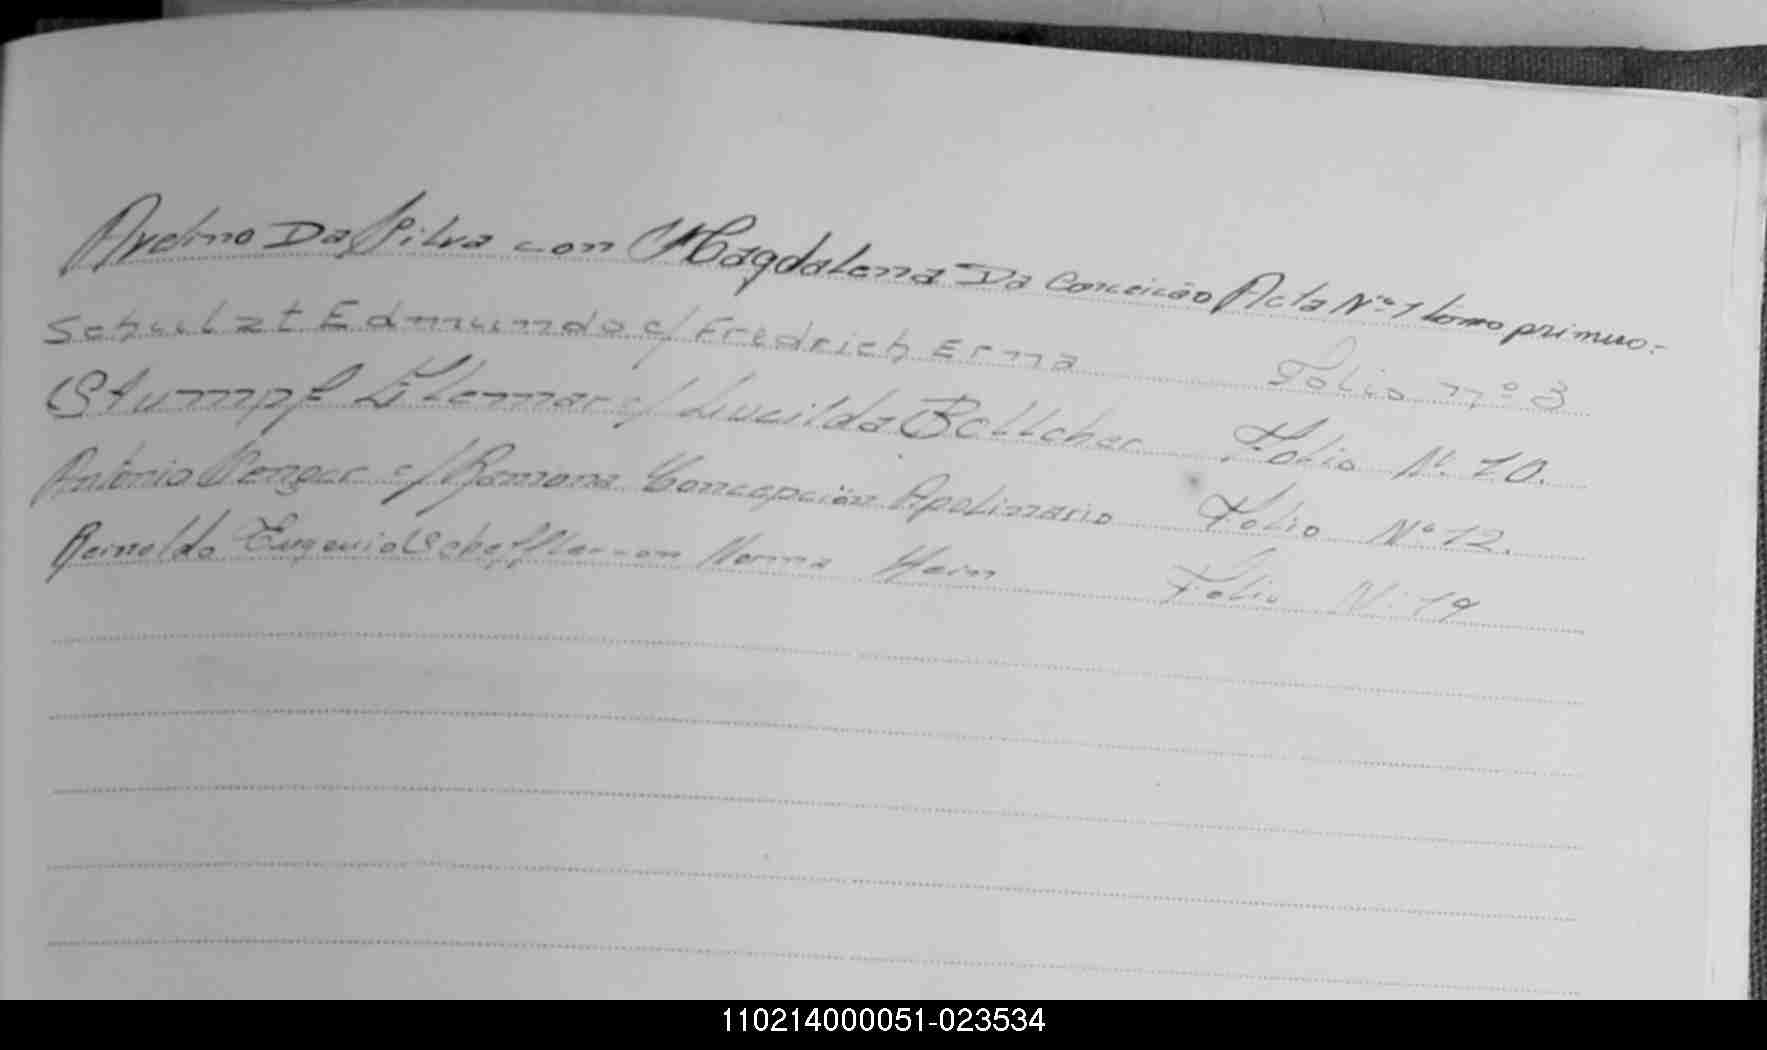 Avelino Da Silva con Magdalena Da Conceição Acta Nº 1 tomo primero.-
Schulzt Edmundo c/ Fredrich Erma Folio nº 3
Stumpf c/ Folio Nº 10.
Antonio c/ Ramona Concepción Apolinario Folio Nº 12.
Reinoldo Eugenio Scheffler con Norma Hein Folio Nº 19
110214000051-023534